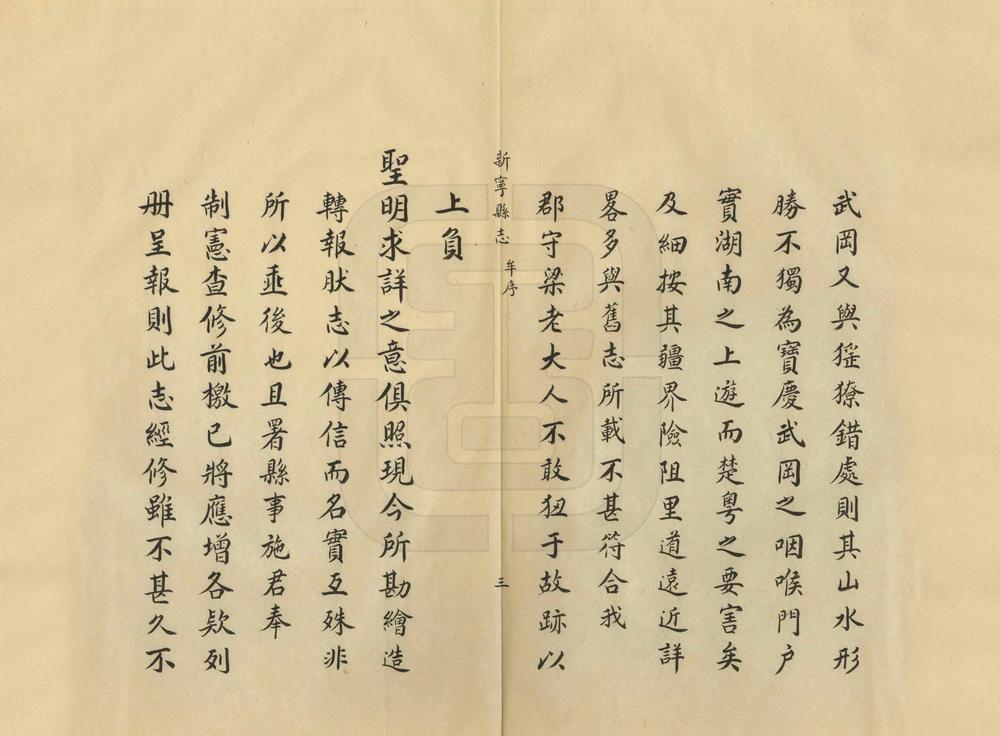 武岡又與猺獠錯處則其山水形
勝不獨為寶慶武岡之咽喉門户
實湖南之上遊而楚粤之要害矣
及細按其疆界險阻里道遠近詳
畧多與舊志所載不甚符合我
郡守梁老大人不敢狃于故跡以
新寧縣志 牟序 三
上負
聖明求詳之意俱照現今所勘繪造
轉報肰志以傳信而名實互殊非
所以垂後也且署縣事施君奉
制憲查修前檄已將應增各欵列
册呈報則此志經修雖不甚久不